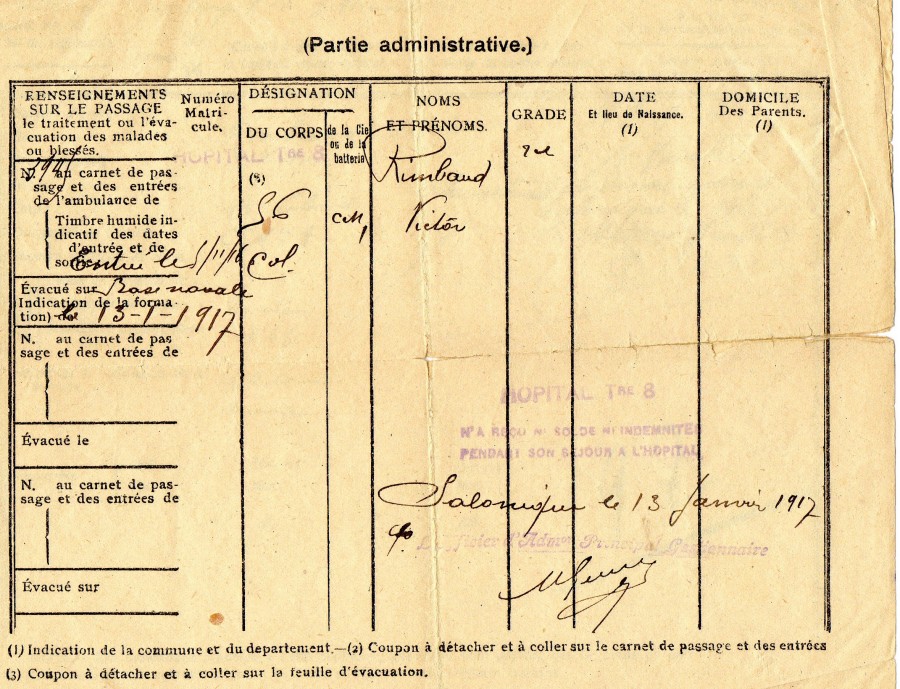 (Partie administrative.)
RENSEIGNEMENTS
SUR LE PASSAGE
le traitement ou l'éva-
cuation des malades
ou blessés.
Numéro
Matri-
cule.
DÉSIGNATION
DU CORPS
de la Cie
ou de la
batterie
NOMS
ET PRÉNOMS.
GRADE
DATE
Et lieu de Naissance.
(1)
DOMICILE
Des Parents.
(1)
HOPITAL TRE 8
N. au carnet de pas-
sage et des entrées
de l'ambulance de
(3)
Rimbaud
2e
Timbre humide in-
dicatif des dates
d'entrée et de
sor
56
CM
1
Victor
Entré le 5/11/16
Col.
Évacué sur Base navale
Indication de la forma-
tion) le 13-1-1917
N. au carnet de pas
sage et des entrées de
HOPITAL TRE 8
N'A REÇU NI SOLDE NI INDEMNITES
PENDANT SON SEJOUR A L'HOPITAL
Évacué le
N. au carnet de pas-
sage et des entrées de
Salonique le 13 Janvier 1917
L'Officier d'Admon Principal Gestionnaire
Évacué sur
(1) Indication de la commune et du departement.—(2) Coupon à détacher et à coller sur le carnet de passage et des entrées
(3) Coupon à détacher et à coller sur la feuille d'évacuation.